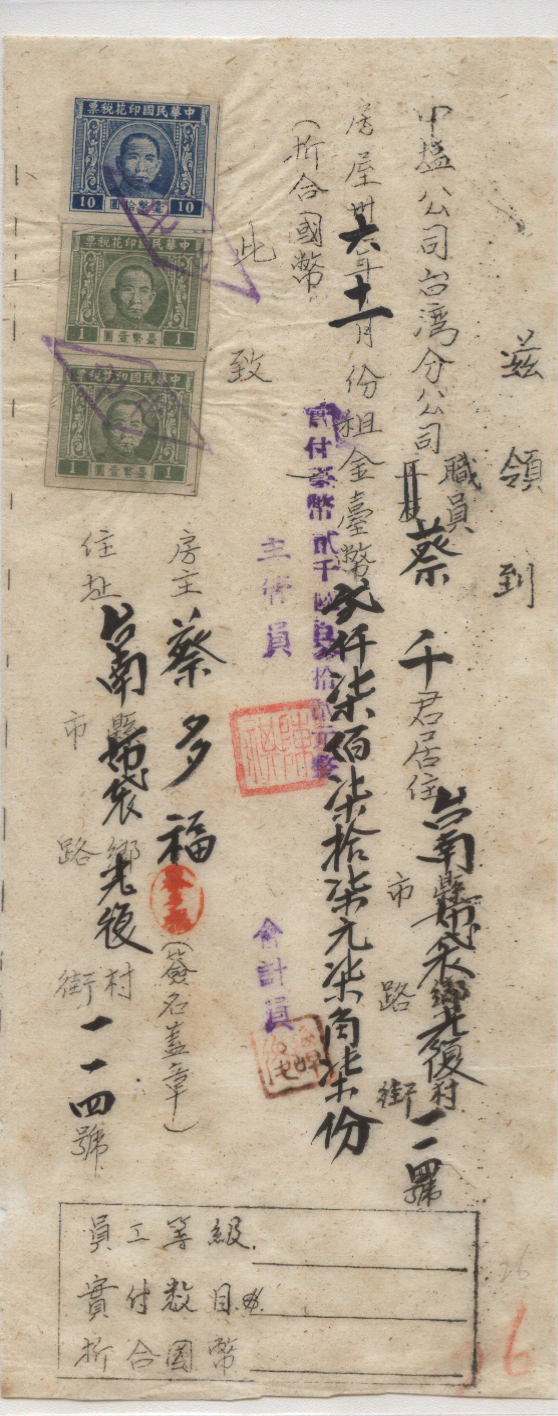 茲領到
中塩公司台灣分公司職員蔡千君居住台南縣布袋鄉老復村一一四號
市路街
房屋卅六年十一月份租金臺幣貳仟柒佰柒拾柒元柒角柒份
(折合國幣
實付臺幣貳千
此致
主管員
會計員
房主蔡多福(簽名蓋章)
住址台南縣布袋鄉老復村一一四號
市路街
中華民國印花稅票
10 臺幣拾圓 10
中華民國印花稅票
1 臺幣壹圓 1
中華民國印花稅票
1 臺幣壹圓 1
員工等級
實付数目
折合國幣
26